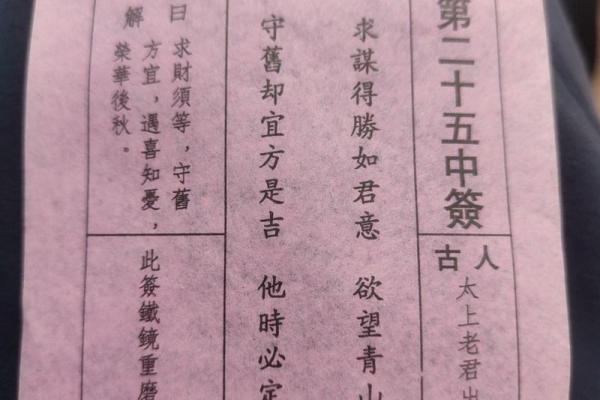 第二十五中簽
古人
太上老君出
求謀得勝如君意 欲望青山
守舊却宜方是吉 他時必定
解曰
求財須等，守舊
方宜，遇喜知憂，
榮華後秋。
此簽鐵鏡重磨